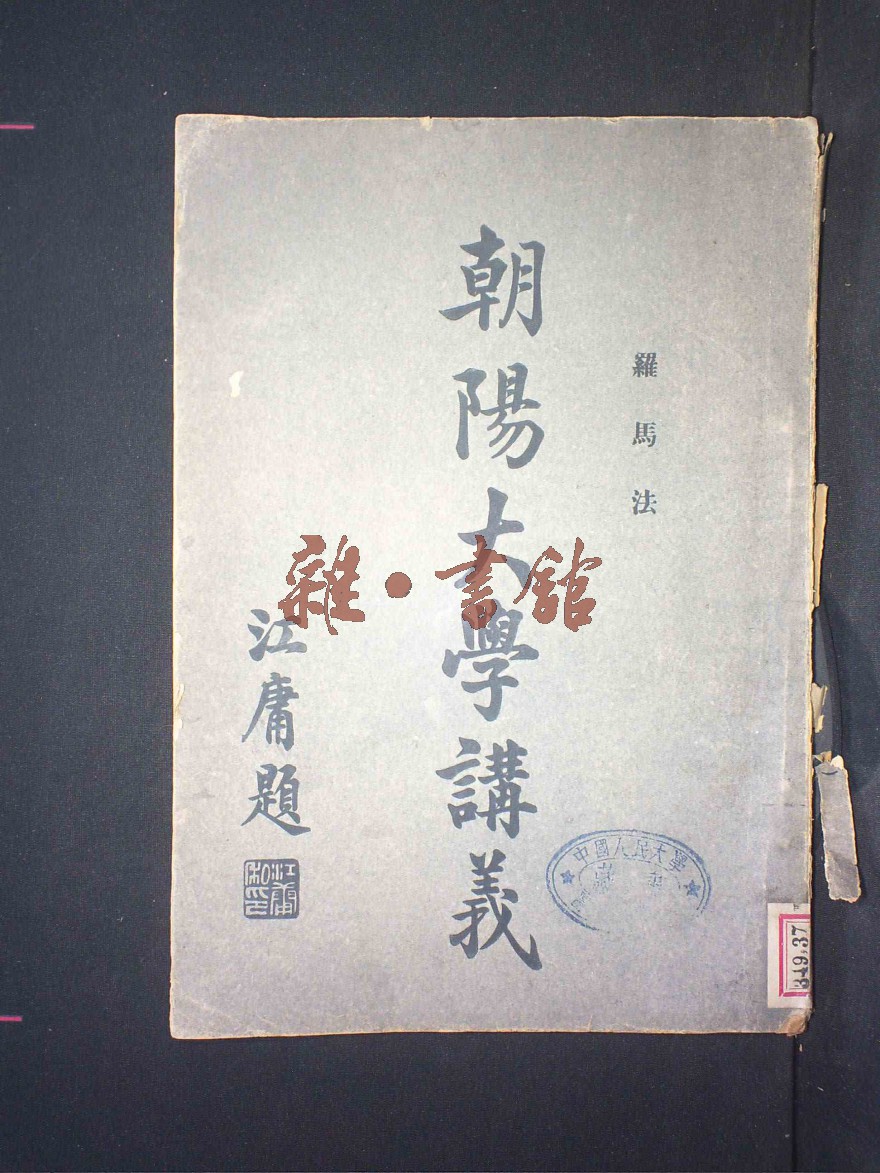 羅馬法
朝陽大學講義
江庸題
江庸私印
雜·書館
中國人民大學
349.37